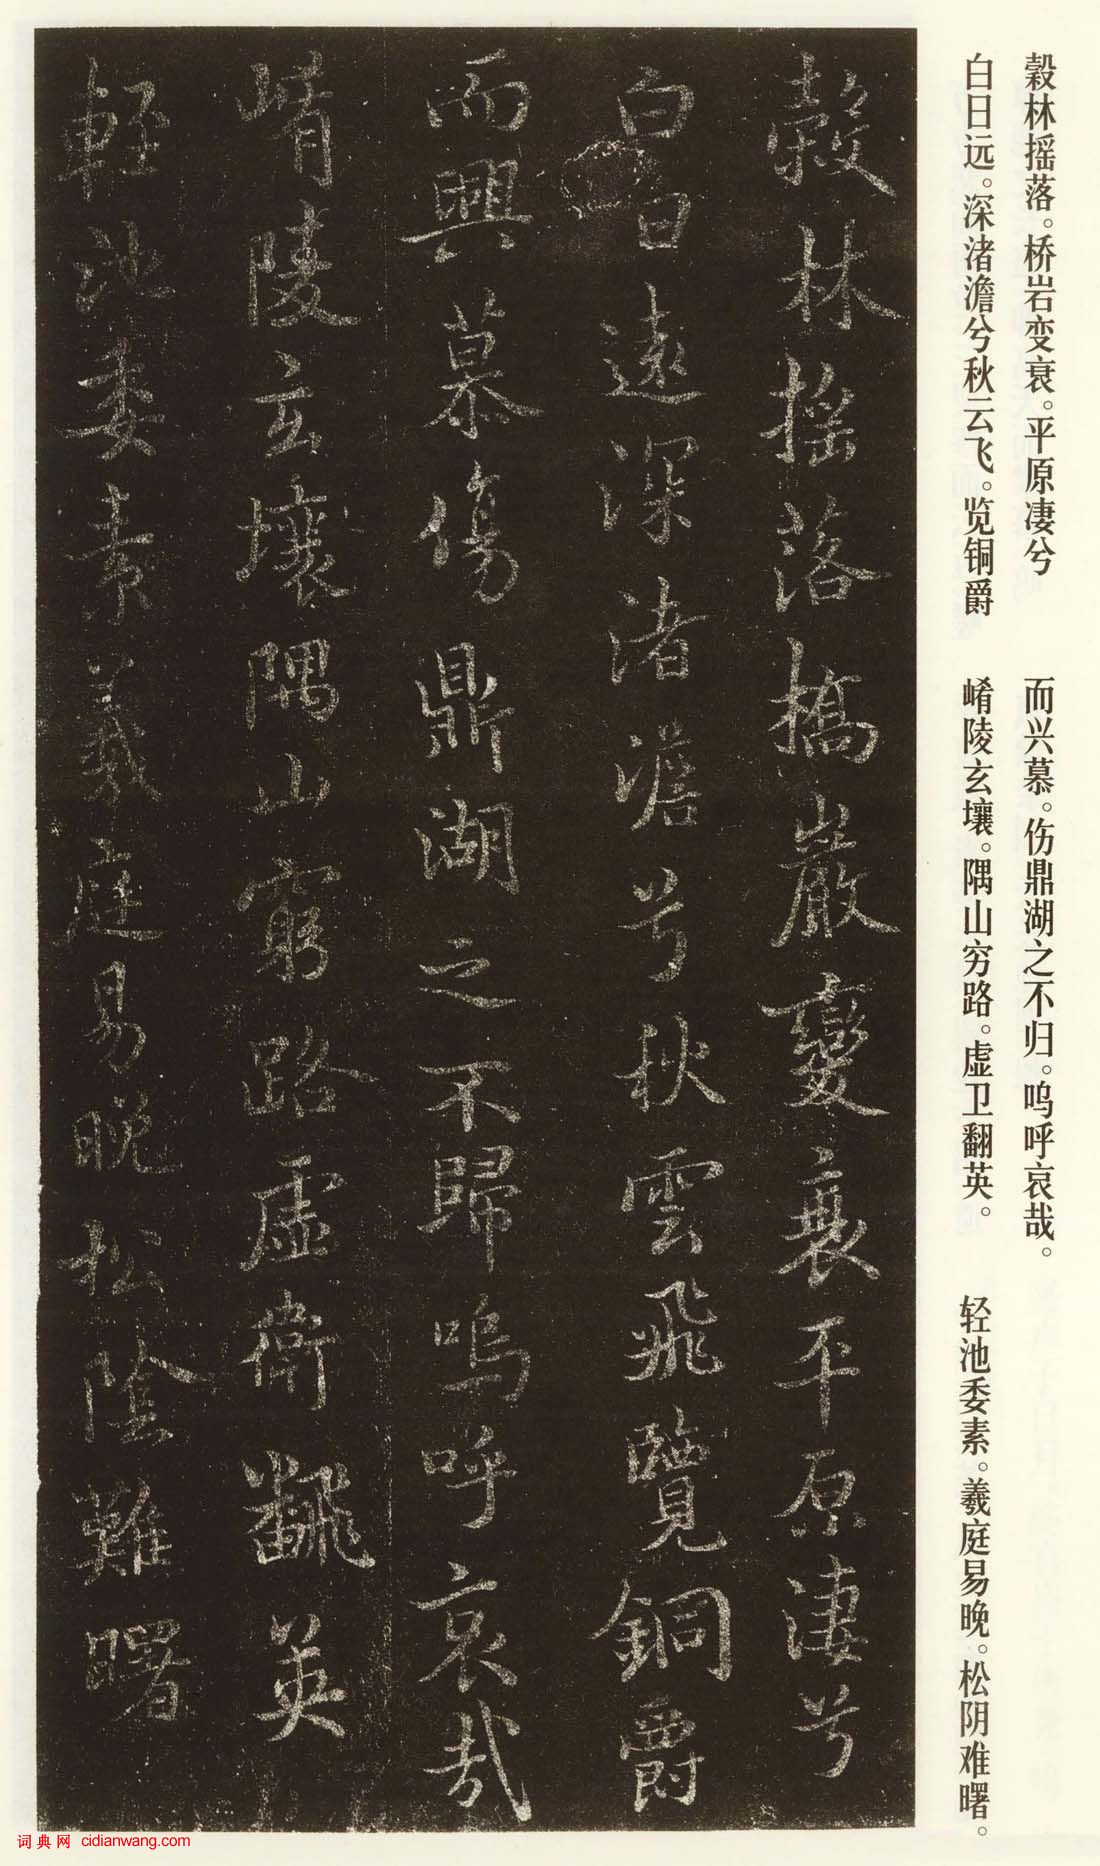 縠林摇落。桥岩变衰。平原凄兮
白日远。深渚澹兮秋云飞。览铜爵
而兴慕。伤鼎湖之不归。呜呼哀哉。
崤陵玄壤。隅山穷路。虚卫翻英。
轻池委素。羲庭易晚。松阴难曙。
穀林搖落橋巖變衰平原淒兮
白日遠深渚澹兮秋雲飛覽銅爵
而興慕傷鼎湖之不歸嗚呼哀哉
崤陵玄壤隅山窮路虛衛翻英
輕池委素羲庭易晚松陰難曙
词典网 cidianwang.com